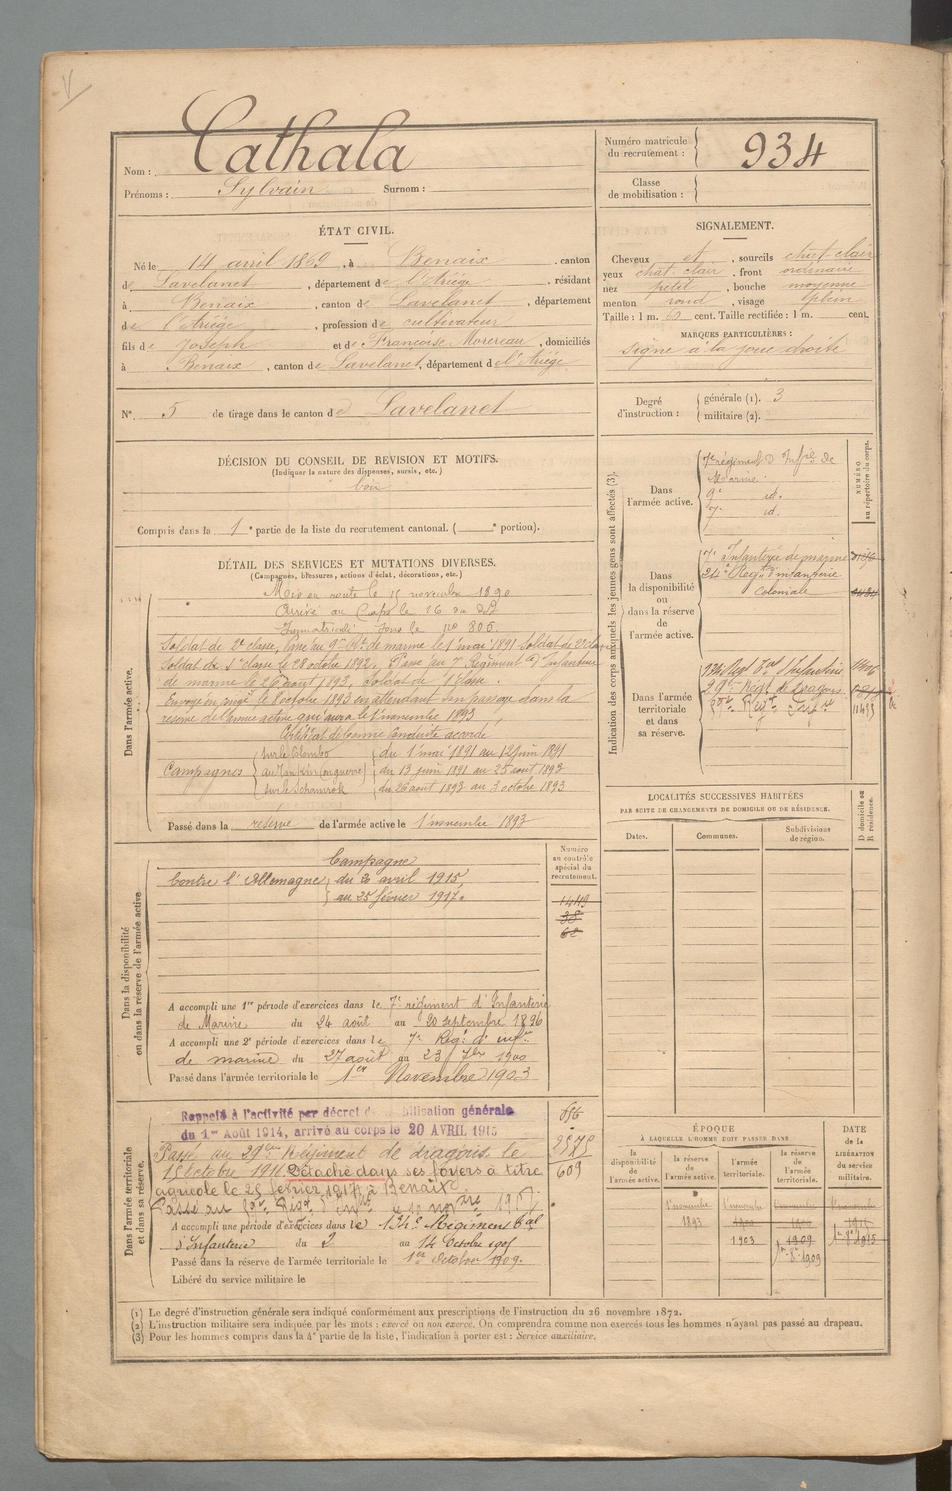 Nom : Cathala
Prénoms : Sylvain Surnom :
Numéro matricule du recrutement : 934
Classe de mobilisation :
ÉTAT CIVIL.
Né le 14 avril 1869, à Benaix, canton
de Lavelanet, département de l'Ariège, résidant
à Benaix, canton de Lavelanet, département
de l'Ariège, profession de cultivateur
fils de Joseph et de Françoise Morereau, domiciliés
à Bénaix, canton de Lavelanet, département de l'Ariège
N° 5 de tirage dans le canton de Lavelanet
SIGNALEMENT.
Cheveux et, sourcils chat. clair
yeux chat. clair, front ordinaire
nez petit, bouche moyenne
menton rond, visage plein
Taille : 1 m. 60 cent. Taille rectifiée : 1 m. cent.
MARQUES PARTICULIÈRES :
signe à la joue droite
Degré d'instruction : générale (1). 3
militaire (2).
DÉCISION DU CONSEIL DE REVISION ET MOTIFS.
(Indiquer la nature des dispenses, sursis, etc.)
bon
Compris dans la 1e partie de la liste du recrutement cantonal. ( e portion).
DÉTAIL DES SERVICES ET MUTATIONS DIVERSES.
(Campagnes, blessures, actions d'éclat, décorations, etc.)
Dans l'armée active.
Mis en route le 15 novembre 1890
Arrivé au Corps le 16 du dit
Immatriculé sous le no 806.
Soldat de 2e classe, Passé au 9e Rt de marine le 1er mai 1891 Soldat de 2e
Soldat de 1e classe le 28 octobre 1892, Passé au 7e Régiment d'Infanterie
de marine le 26 août 1893, soldat de 1e classe.
Envoyé en congé le 8 octobre 1893 en attendant son passage dans la
réserve de l'armée active qui aura le 1er novembre 1893
Certificat de bonne conduite accordé
Campagnes
sur le Colombo du 1er mai 1891 au 12 juin 1891
au Tonkin (en guerre) du 13 juin 1891 au 25 août 1893
sur le Schamrok du 26 août 1893 au 3 octobre 1893
Passé dans la réserve de l'armée active le 1er novembre 1893
Indication des corps auxquels les jeunes gens sont affectés (3).
NUMÉRO au répertoire du corps.
Dans l'armée active.
7e régiment d'Infrie de
Marine.
9e id.
7e id.
Dans la disponibilité ou dans la réserve de l'armée active.
7e Infanterie de marine
24e Regt d'infanterie
Coloniale
Dans l'armée territoriale et dans sa réserve.
134e Regt Tal d'Infanterie
29e Regt de Dragons
11493
LOCALITÉS SUCCESSIVES HABITÉES
PAR SUITE DE CHANGEMENTS DE DOMICILE OU DE RÉSIDENCE.
Dates. Communes. Subdivisions de région. D domicile ou R résidence.
Dans la disponibilité ou dans la réserve de l'armée active
Numéro au contrôle spécial du recrutement.
Campagne
Contre l'Allemagne du 20 avril 1915,
au 25 février 1917.
1449
38
62
A accompli une 1re période d'exercices dans le 7e régiment d'Infanterie
de Marine du 24 août au 20 septembre 1896
A accompli une 2e période d'exercices dans le 7e Regt d'infie
de marine du 27 août au 23 7bre 1900
Passé dans l'armée territoriale le 1er Novembre 1903
Dans l'armée territoriale et dans sa réserve.
Rappelé à l'activité par décret de mobilisation générale
du 1er Août 1914, arrivé au corps le 20 AVRIL 1915
Passé au 29ème Régiment de dragons le
15 octobre 1916. Détaché dans ses foyers à titre
agricole le 25 février 1917 à Benaix.
656
2575
609
A accompli une période d'exercices dans le 134e Régiment Tal
d'Infanterie du 2 au 14 Octobre 1905
Passé dans la réserve de l'armée territoriale le 1er Octobre 1909.
Libéré du service militaire le
ÉPOQUE
À LAQUELLE L'HOMME DOIT PASSER DANS
la disponibilité de l'armée active. la réserve de l'armée active. l'armée territoriale. la réserve de l'armée territoriale.
DATE de la LIBÉRATION du service militaire.
1er novembre 1893
1er novembre 1903
1909
1er 8bre 1909
1er 8bre 1915
(1) Le degré d'instruction générale sera indiqué conformément aux prescriptions de l'instruction du 26 novembre 1872.
(2) L'instruction militaire sera indiquée par les mots : exercé ou non exercé. On comprendra comme non exercés tous les hommes n'ayant pas passé au drapeau.
(3) Pour les hommes compris dans la 4e partie de la liste, l'indication à porter est : Service auxiliaire.